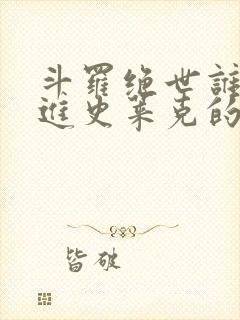 斗羅绝世誰
進史莱克的
皆破